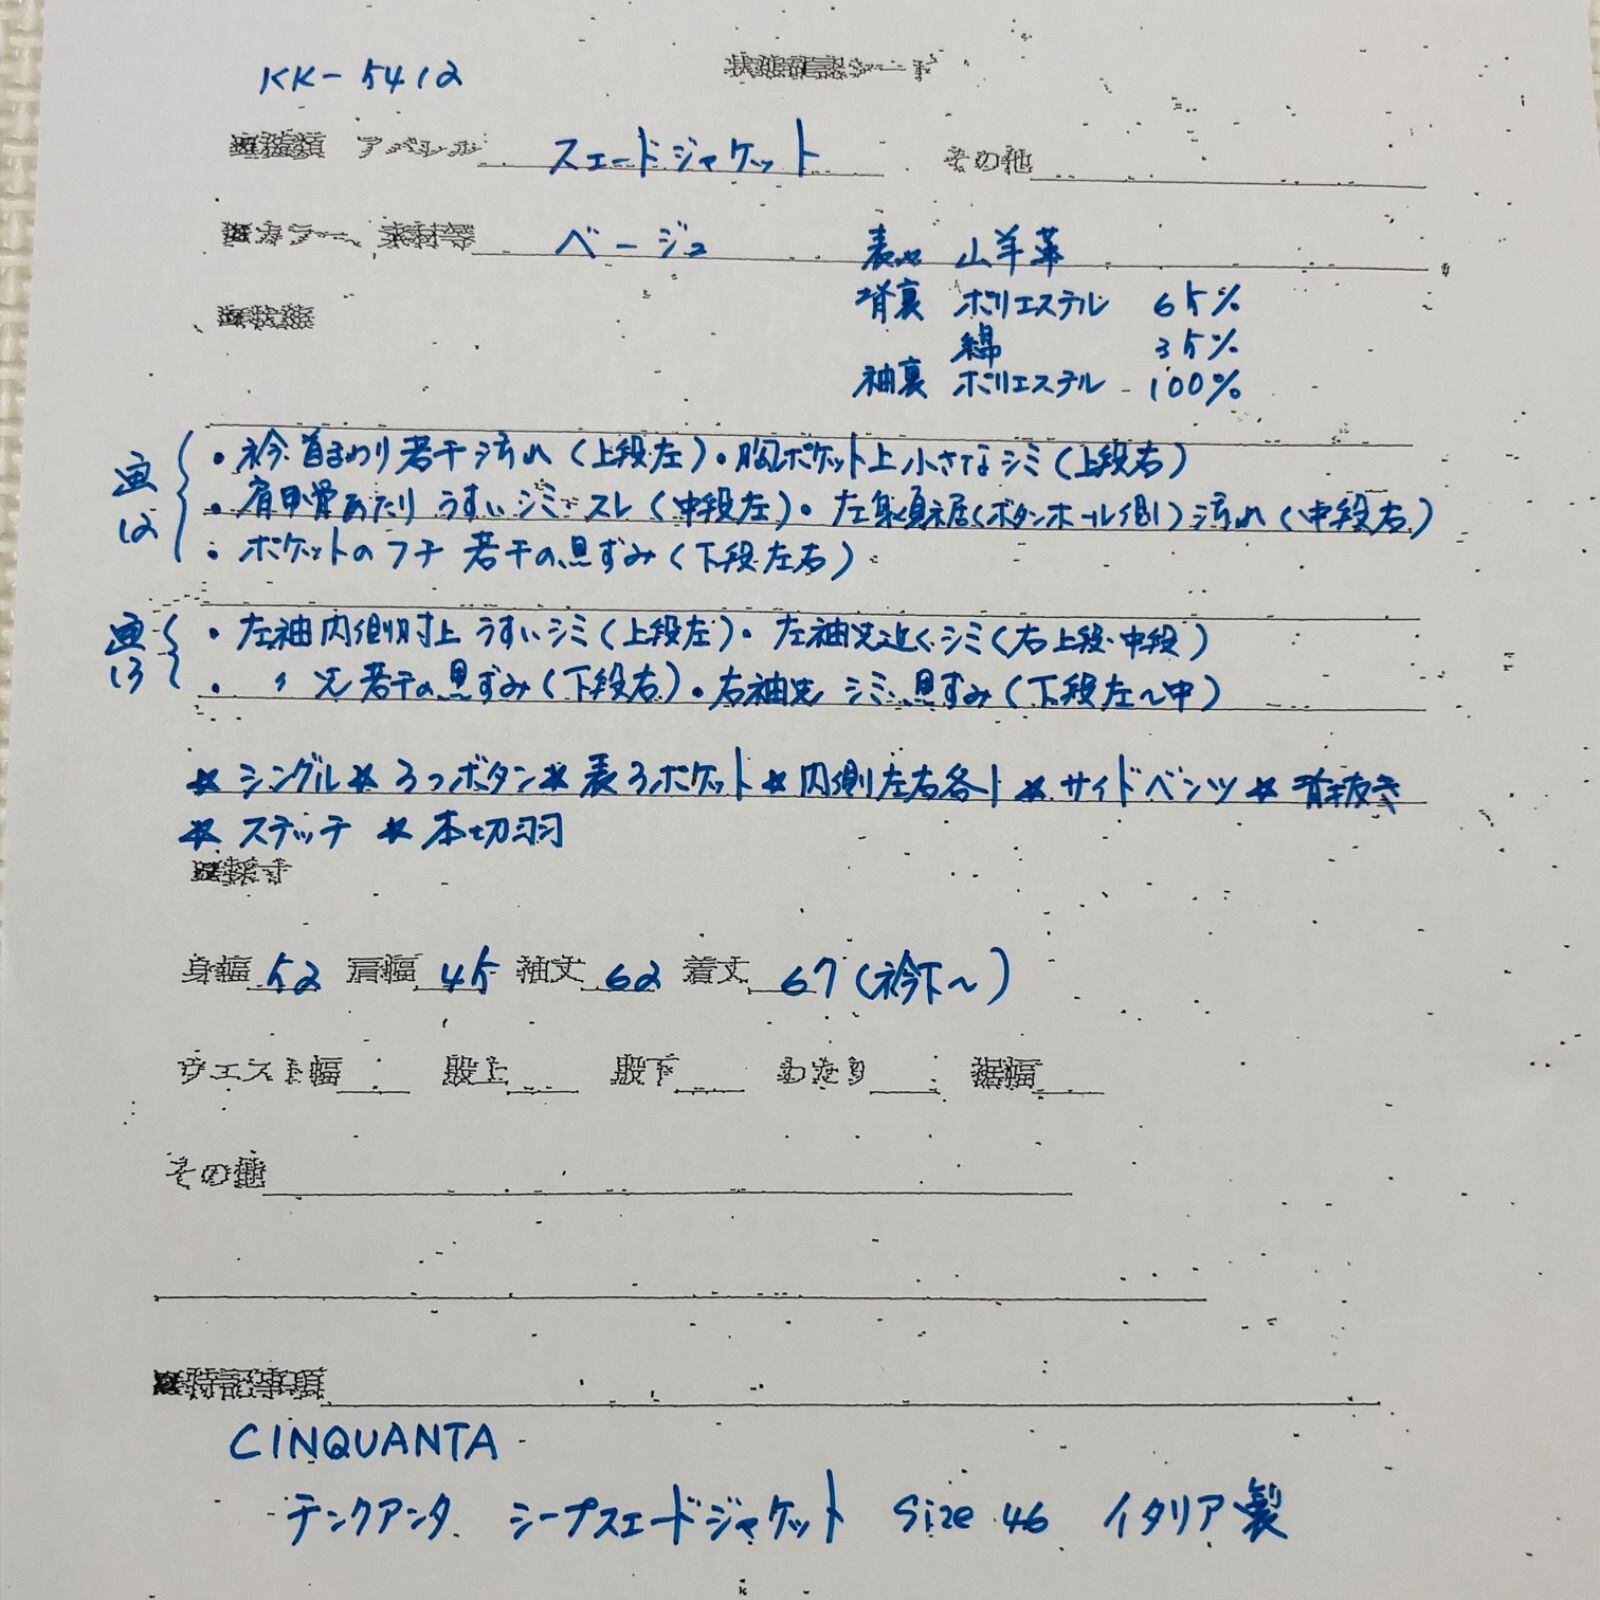 KK-5412
状態確認シート
■種類 アパレル スエードジャケット その他
■カラー、素材等 ベージュ 表地 山羊革
■状態 背裏 ポリエステル 65%
綿 35%
袖裏 ポリエステル 100%
・衿・首まわり若干汚れ(上段左)・胸ポケット上小さなシミ(上段右)
画12 ・肩甲骨あたり うすいシミ・スレ(中段左)・左身頃裾(ボタンホール側)汚れ(中段右)
・ポケットのフチ 若干の黒ずみ(下段左右)
画13 ・左袖内側肘上うすいシミ(上段左)・左袖先近くシミ(右上段・中段)
・〃先若干の黒ずみ(下段右)・右袖先シミ、黒ずみ(下段左〜中)
★シングル★3つボタン★表3ポケット★内側左右各1★サイドベンツ★背抜き
★ステッチ★本切羽
■採寸
身幅 52 肩幅 45 袖丈 62 着丈 67(衿下〜)
ウエスト幅 股上 股下 わたり 裾幅
その他
■特記事項
CINQUANTA
チンクアンタ シープスエードジャケット Size 46 イタリア製